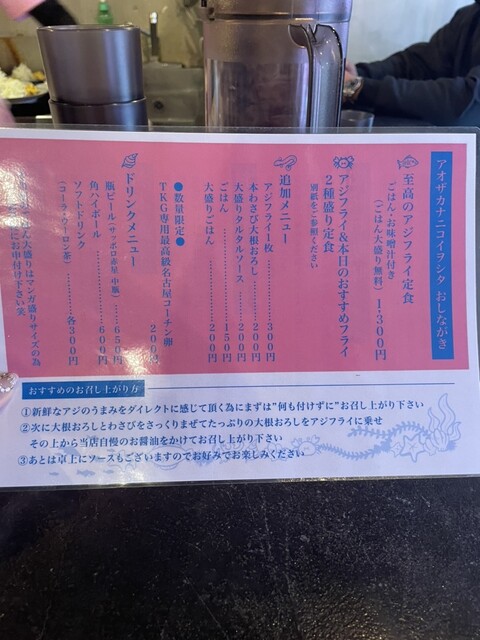 アオザカナニコイヲシタ おしながき
至高のアジフライ定食
ごはん・お味噌汁付き
(ごはん大盛り無料) 1,300円
アジフライ&本日のおすすめフライ
2種盛り定食
別紙をご参照ください
追加メニュー
アジフライ1枚 ………… 300円
本わさび大根おろし …… 200円
大盛りタルタルソース … 200円
ごはん ………… 150円
大盛りごはん ………… 200円
●数量限定●
TKG専用最高級名古屋コーチン卵
200円
ドリンクメニュー
瓶ビール(サッポロ赤星 中瓶) … 650円
角ハイボール ………… 600円
ソフトドリンク ………… 各300円
(コーラ・ウーロン茶)
ごはん大盛りはマンガ盛りサイズの為
お申付け下さい笑
おすすめのお召し上がり方
①新鮮なアジのうまみをダイレクトに感じて頂く為にまずは"何も付けずに"お召し上がり下さい
②次に大根おろしとわさびをさっくりまぜてたっぷりの大根おろしをアジフライに乗せ
その上から当店自慢のお醤油をかけてお召し上がり下さい
③あとは卓上にソースもございますのでお好みでお楽しみください